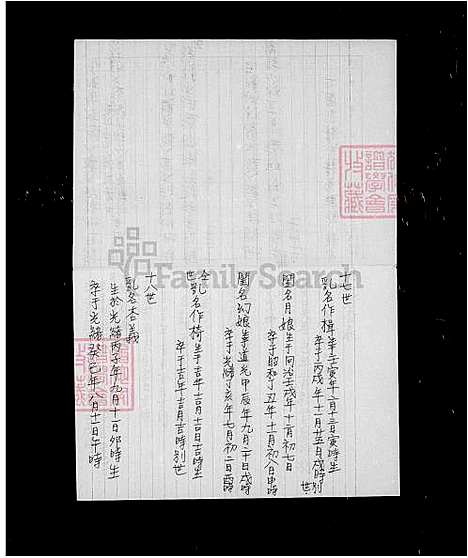 十七世
乳名作楫 生于壬寅年二月十三日寅時生
卒于丙戌年十一月廿五日戌時別世
閨名月娘 生于同治壬戌年十二月初七日
卒于昭和丁丑年十二月初八日申時
閨名幻娘 生于道光甲辰年九月二十日戌時
卒于光緒丁亥年七月初二日酉時
仝世 乳名作椅 生于吉年吉月吉日吉時生
卒于吉年吉月吉時別世
十八世
乳名杏義
生於光緒丙子年九月十一日卯時生
卒于光緒癸巳年八月十一日午時
譜學會
收藏
FamilySearch